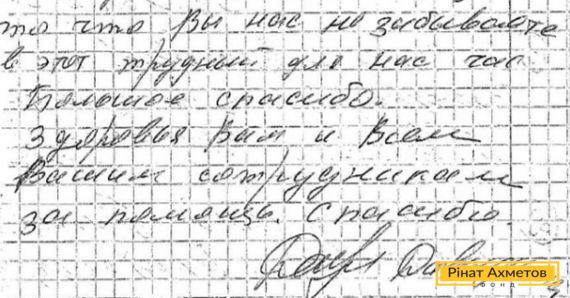 то что Вы нас не забываете
в этот трудный для нас час
Большое спасибо.
Здоровья Вам и Всем
Вашим сотрудникам
за помощь. Спасибо
Рінат Ахметов
ФОНД